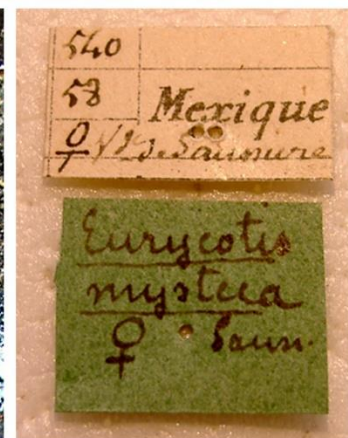 540
58 Mexique
♀ de Saussure
Eurycotis
mysteca
♀ Sauss.